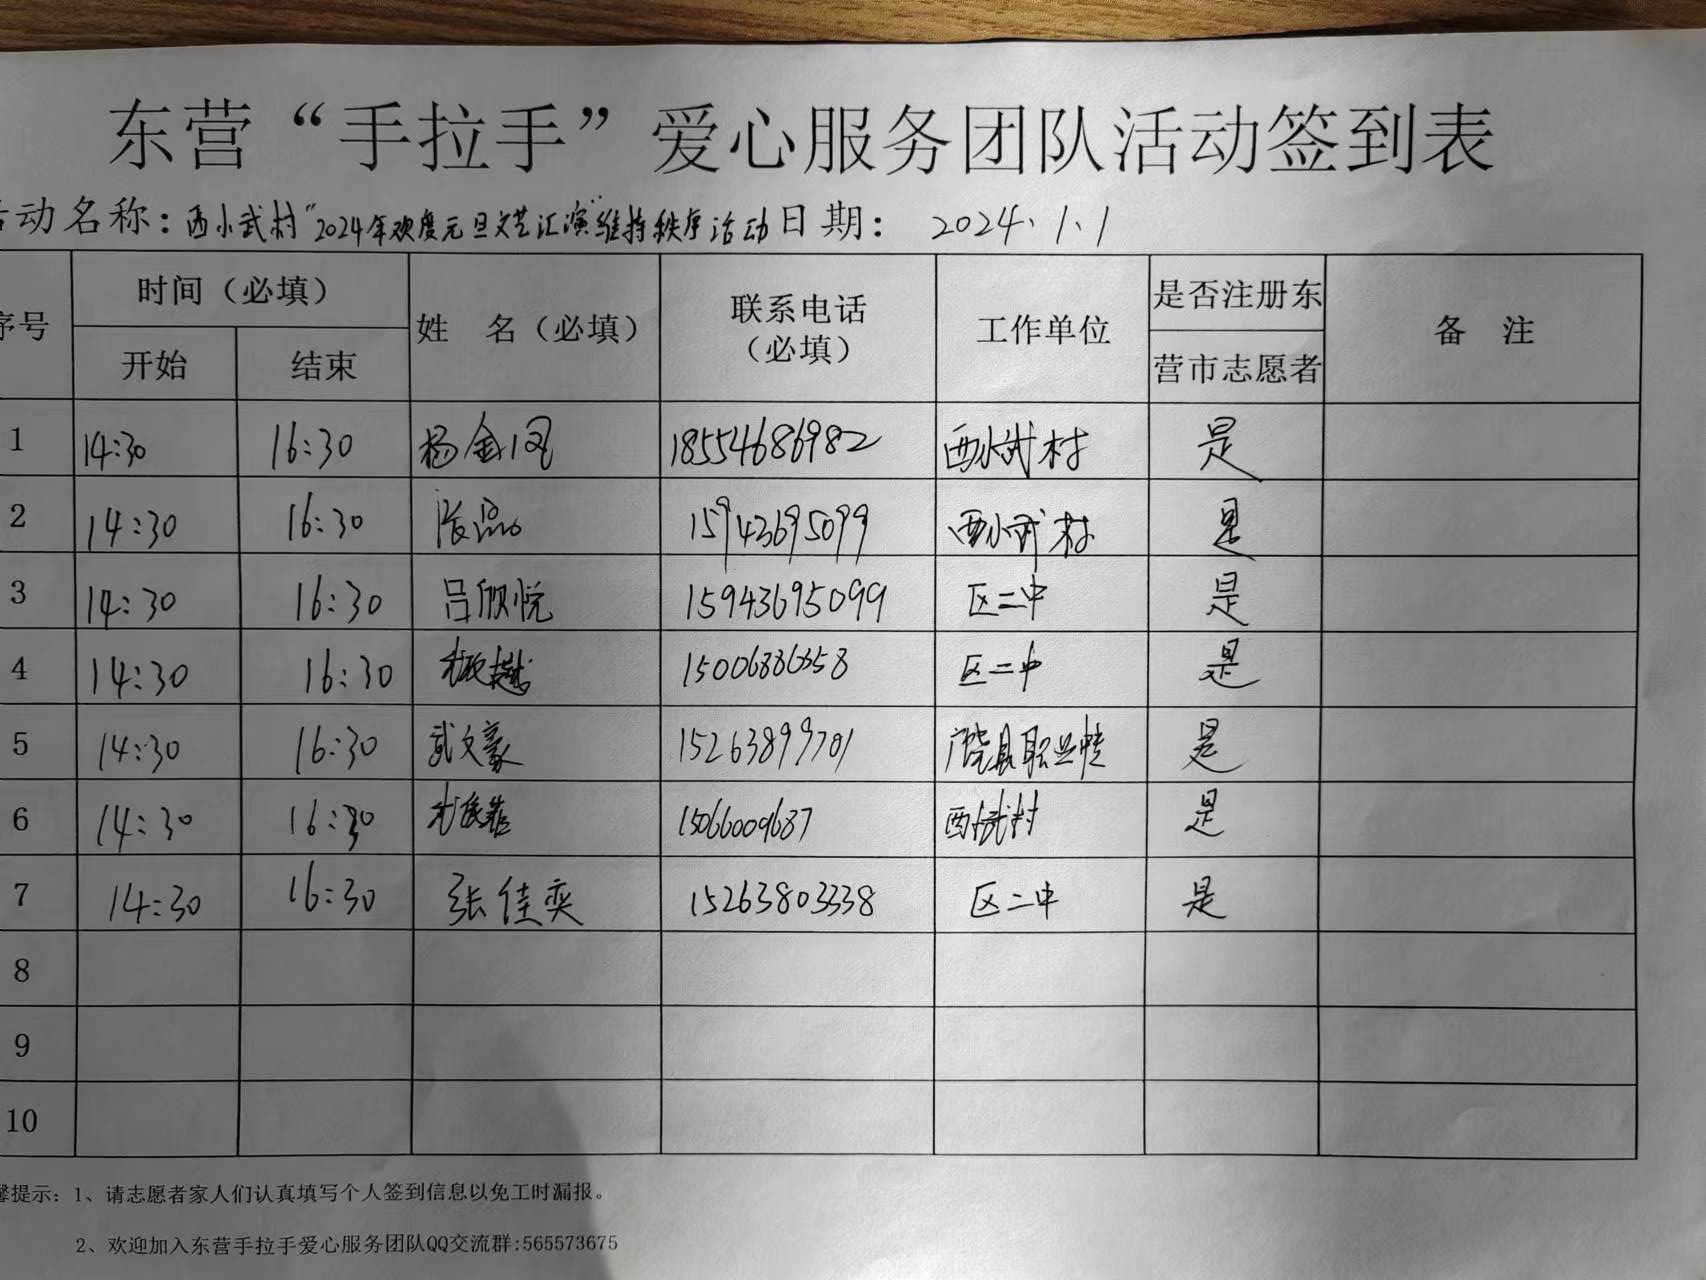 东营“手拉手”爱心服务团队活动签到表
动名称：西小武村“2024年欢度元旦文艺汇演”维持秩序活动 日期： 2024.1.1
序号 时间（必填） 姓 名（必填） 联系电话（必填） 工作单位 是否注册东营市志愿者 备 注
开始 结束
1 14:30 16:30 杨金凤 18554686982 西小武村 是
2 14:30 16:30 15943695099 西小武村 是
3 14:30 16:30 吕欣悦 15943695099 区二中 是
4 14:30 16:30 区二中 是
5 14:30 16:30 武文豪 15263899701 广饶县职业中专 是
6 14:30 16:30 15066009687 西小武村 是
7 14:30 16:30 张佳奕 15263803338 区二中 是
8
9
10
提示：1、请志愿者家人们认真填写个人签到信息以免工时漏报。
2、欢迎加入东营手拉手爱心服务团队QQ交流群:565573675